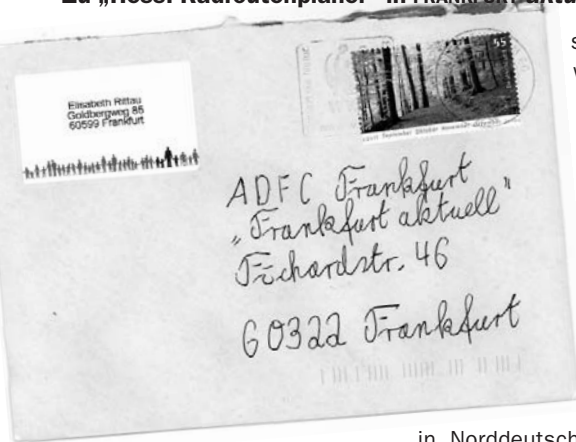 Zu „Hess. Radroutenplaner“ in FRANKFURT aktu
s
Elisabeth Rittau
Goldbergweg 85
60599 Frankfurt
55
ADFC Frankfurt
„Frankfurt aktuell“
Fichardstr. 46
60322 Frankfurt
in Norddeutsch